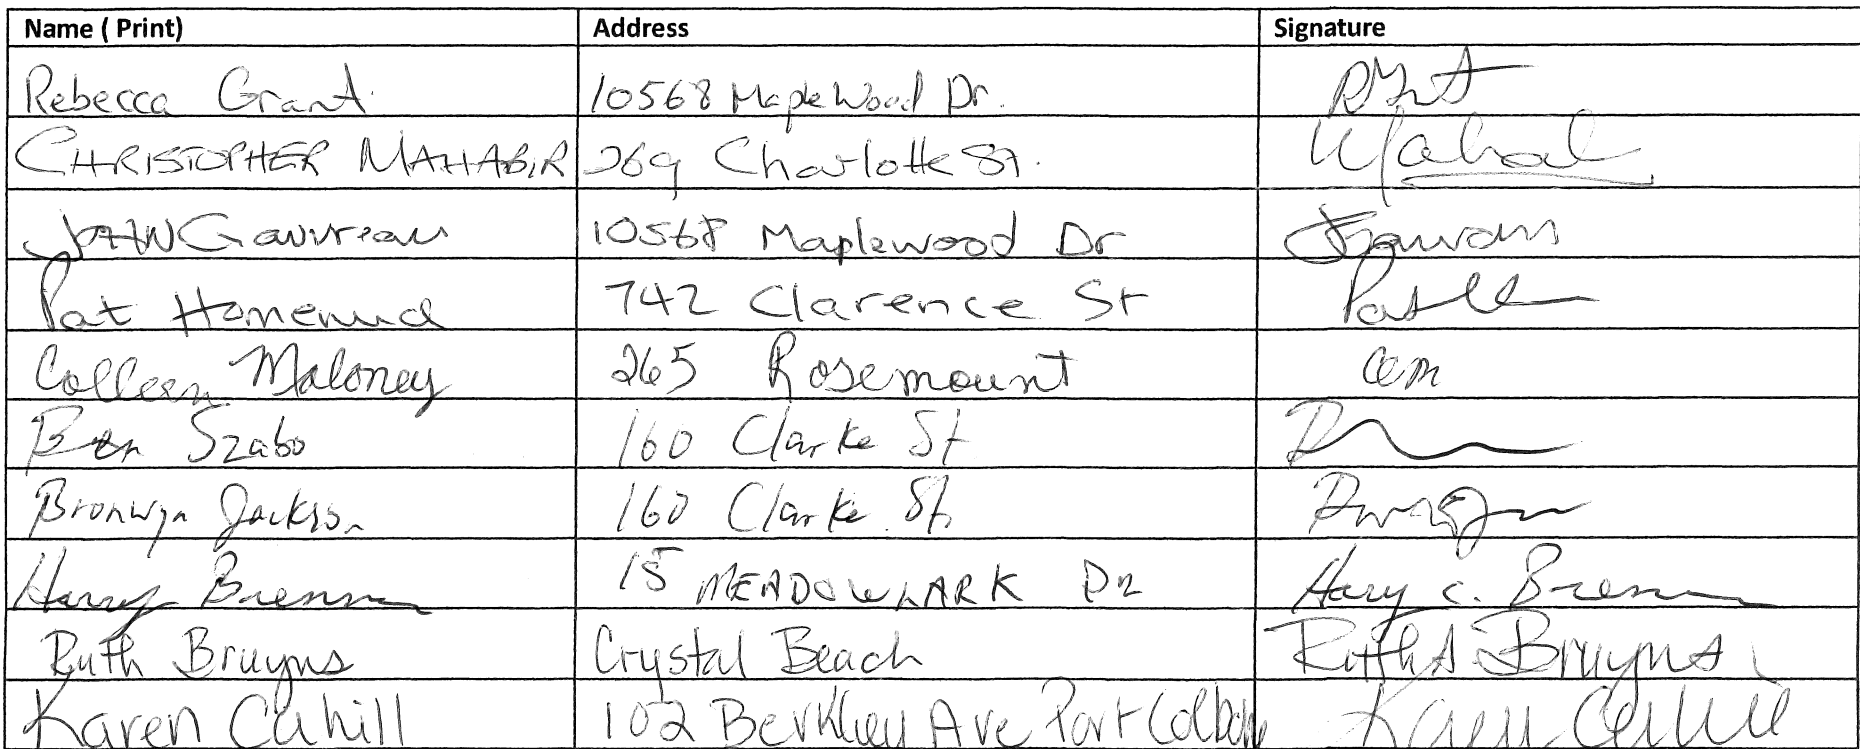 Name ( Print) Address Signature
Rebecca Grant 10568 Maplewood Dr.
CHRISTOPHER MAHABIR 269 Charlotte St.
10568 Maplewood Dr
Pat 742 Clarence St
Colleen Maloney 265 Rosemount cem
Ben Szabo 160 Clarke St
Bronwyn Jackson 160 Clarke St.
Harry 15 MEADOWLARK DR Harry C.
Ruth Bruyns Crystal Beach Ruth A Bruyns
Karen Cahill 102 Berkley Ave Port Colborne Karen Cahill